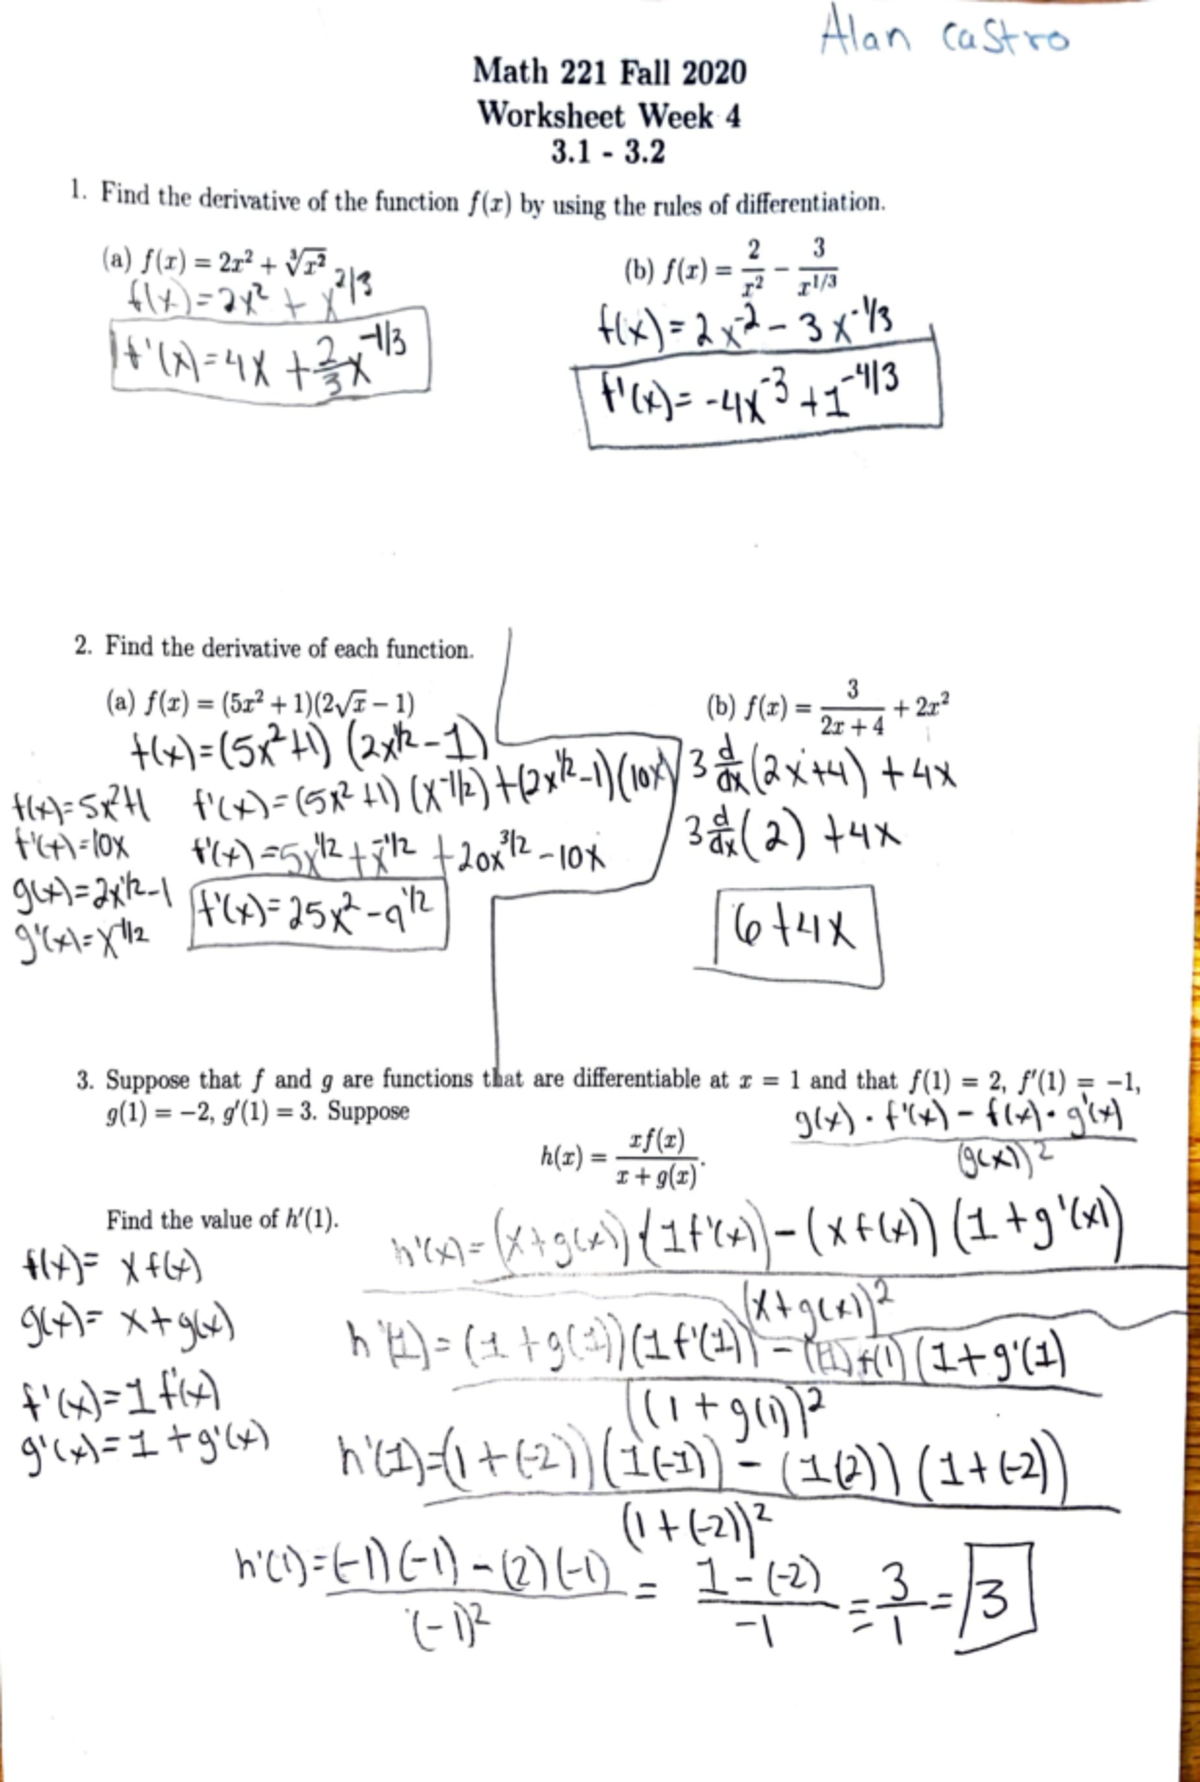 Alan Castro
Math 221 Fall 2020
Worksheet Week 4
3.1 - 3.2
1. Find the derivative of the function f(x) by using the rules of differentiation.
(a) f(x) = 2x² + ∛x²
f(x) = 2x² + x^2/3
f'(x) = 4x + 2/3 x^-1/3
(b) f(x) = 2/x² - 3/x^1/3
f(x) = 2x^-2 - 3x^-1/3
f'(x) = -4x^-3 + 1^-4/3
2. Find the derivative of each function.
(a) f(x) = (5x² + 1)(2√x - 1)
f(x) = (5x²+1) (2x^1/2 - 1)
f(x) = 5x²+1
f'(x) = 10x
g(x) = 2x^1/2 - 1
g'(x) = x^-1/2
f'(x) = (5x²+1) (x^-1/2) + (2x^1/2 - 1)(10x)
f'(x) = 5x^1/2 + x^-1/2 + 20x^3/2 - 10x
f'(x) = 25x² - 9^1/2
(b) f(x) = 3/(2x + 4) + 2x²
3 d/dx (2x+4) + 4x
3 d/dx (2) + 4x
6 + 4x
3. Suppose that f and g are functions that are differentiable at x = 1 and that f(1) = 2, f'(1) = -1,
g(1) = -2, g'(1) = 3. Suppose
g(x) · f'(x) - f(x) · g'(x) / (g(x))²
h(x) = xf(x) / x + g(x).
Find the value of h'(1).
f(x) = x f(x)
g(x) = x + g(x)
f'(x) = 1 f'(x)
g'(x) = 1 + g'(x)
h'(x) = (x+g(x)) (1f'(x)) - (x f(x)) (1+g'(x)) / (x+g(x))²
h'(1) = (1+g(1))(1f'(1)) - (1)f(1) (1+g'(1) / (1+g(1))²
h'(1) = (1+(-2)) (1(-1)) - (1(2)) (1+(-2)) / (1+(-2))²
h'(1) = (-1)(-1) - (2)(-1) / (-1)² = 1-(-2) / -1 = 3/1 = 3